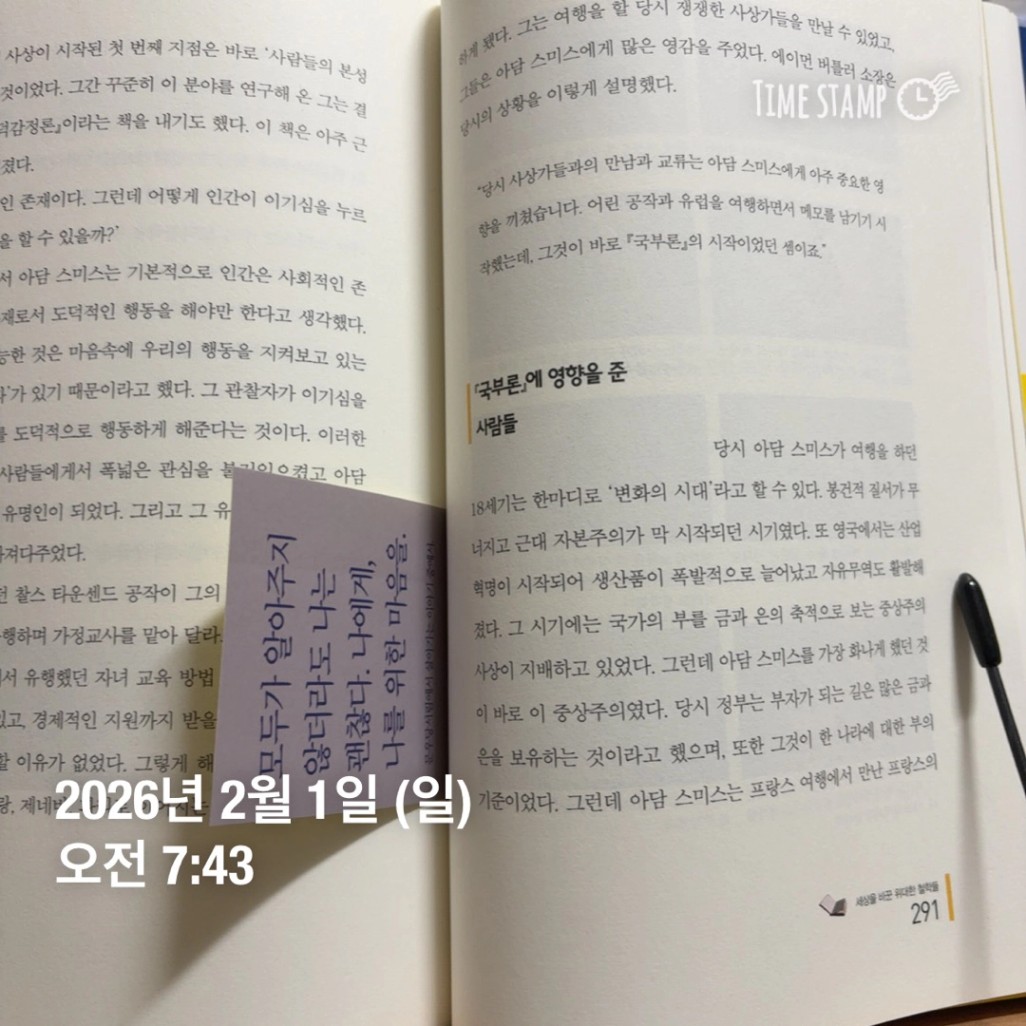 사상이 시작된 첫 번째 지점은 바로 ‘사람들의 본성
것이었다. 그간 꾸준히 이 분야를 연구해 온 그는 결
덕감정론』이라는 책을 내기도 했다. 이 책은 아주 근
졌다.
인 존재이다. 그런데 어떻게 인간이 이기심을 누르
을 할 수 있을까?’
서 아담 스미스는 기본적으로 인간은 사회적인 존
재로서 도덕적인 행동을 해야만 한다고 생각했다.
능한 것은 마음속에 우리의 행동을 지켜보고 있는
’가 있기 때문이라고 했다. 그 관찰자가 이기심을
를 도덕적으로 행동하게 해준다는 것이다. 이러한
사람들에게서 폭넓은 관심을 불러일으켰고 아담
유명인이 되었다. 그리고 그 유
가져다주었다.
던 찰스 타운센드 공작이 그의
행하며 가정교사를 맡아 달라.
서 유행했던 자녀 교육 방법
있고, 경제적인 지원까지 받을
할 이유가 없었다. 그렇게 해
랑, 제네바
모두가 알아주지
않더라도 나는
괜찮다. 나에게,
나를 위한 마음을.
하게 됐다. 그는 여행을 할 당시 쟁쟁한 사상가들을 만날 수 있었고,
그들은 아담 스미스에게 많은 영감을 주었다. 에이먼 버틀러 소장은
당시의 상황을 이렇게 설명했다.
“당시 사상가들과의 만남과 교류는 아담 스미스에게 아주 중요한 영
향을 끼쳤습니다. 어린 공작과 유럽을 여행하면서 메모를 남기기 시
작했는데, 그것이 바로 『국부론』의 시작이었던 셈이죠.”
『국부론』에 영향을 준
사람들
당시 아담 스미스가 여행을 하던
18세기는 한마디로 ‘변화의 시대’라고 할 수 있다. 봉건적 질서가 무
너지고 근대 자본주의가 막 시작되던 시기였다. 또 영국에서는 산업
혁명이 시작되어 생산품이 폭발적으로 늘어났고 자유무역도 활발해
졌다. 그 시기에는 국가의 부를 금과 은의 축적으로 보는 중상주의
사상이 지배하고 있었다. 그런데 아담 스미스를 가장 화나게 했던 것
이 바로 이 중상주의였다. 당시 정부는 부자가 되는 길은 많은 금과
은을 보유하는 것이라고 했으며, 또한 그것이 한 나라에 대한 부의
기준이었다. 그런데 아담 스미스는 프랑스 여행에서 만난 프랑스의
세상을 바꾼 위대한 철학들
291
TIME STAMP
2026년 2월 1일 (일)
오전 7:43